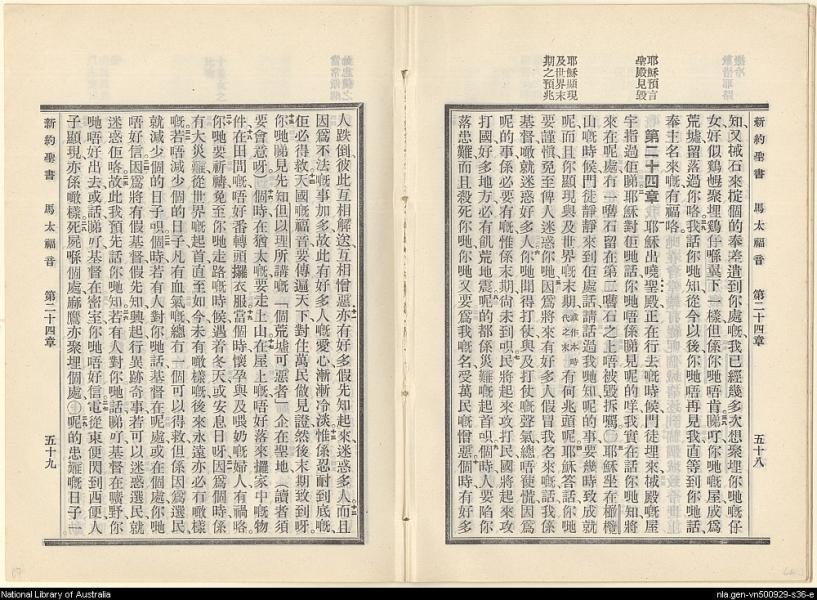 新約聖書 馬太福音 第二十四章 五十八
知又械石來掟個的奉差遣到你處嘅我已經幾多次想聚埋你哋嘅仔
女好似鷄乸聚埋鷄仔喺翼下一樣但係你哋唔肯睇吓你哋嘅屋成爲
荒墟留落過你咯我話你哋知從今以後你哋唔再見我直等到你話
奉主名來嘅有福咯
耶穌預言
聖殿見毀
第二十四章 耶穌出嘵聖殿正在行去嘅時候門徒埋來械殿嘅屋
宇指過佢睇耶穌對佢哋話你哋唔係睇見呢的咩我實在話你哋知將
來在呢處冇一嚿石留在第二嚿石之上唔被毀拆嘅○耶穌坐在橄欖
山嘅時候門徒靜靜來到佢處話請話過我哋知呢的事要幾時致成就
耶穌顯現
及世界末
期之預兆
呢而且你顯現與及世界嘅末期 或作本時代之末 有何兆頭呢耶穌答話你哋
要謹愼免至俾人迷惑你哋因爲將來有好多人假冒我名來嘅話我係
基督噉就迷惑好多人你哋聞得打仗與及打仗嘅聲氣總唔使慌因爲
呢的事係必要有嘅惟係末期尙未到呀民將起來攻打民國將起來攻
打國好多地方必有飢荒地震呢的都係災難嘅起首個時人要陷你
落患難而且殺死你哋你哋又要爲我嘅名受萬民嘅憎惡個時有好多
人跌倒彼此互相解送互相憎惡亦有好多假先知起來迷惑多人而且
因爲不法嘅事加多故此有好多人嘅愛心漸漸冷淡惟係忍耐到底嘅
佢必得救天國嘅福音要傳遍天下對住萬民做見證然後末期致到呀
你哋睇見先知但以理所講嘅「個荒墟可惡者」企在聖地(讀者須
要會意呀)個時在猶太嘅要走上山在屋上嘅唔好落來攞家中嘅物
件在田間嘅唔好番轉頭攞衣服當個時懷孕與及喂奶嘅婦人有禍咯
你哋要祈禱免至你哋走路嘅時候遇着冬天或安息日呀因爲個時係
有大災難從世界嘅起首直至如今未有噉樣嘅後來永遠亦必冇噉樣
嘅若唔減少個的日子凡有血氣嘅總冇一個可以得救但係因爲選民
就減少個的日子呀個時若有人對你哋話基督在呢處或在個處你哋
唔好信因爲將有假基督假先知興起行異跡奇事若可以迷惑選民就
迷惑佢咯故此我預先話你哋知若有人對你哋話睇吓基督在曠野你
哋唔好出去或話睇吓基督在密室你哋唔好信電從東便閃到西便人
子顯現亦係噉樣死屍喺個處麻鷹亦聚埋個處○呢的患難嘅日子一
新約聖書 馬太福音 第二十四章 五十九
National Library of Australia
nla.gen-vn500929-s36-e